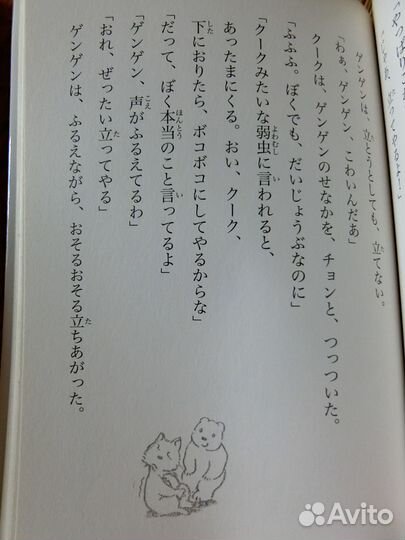 ゲンゲンは、立とうとしても、立てない。
「わぁ、ゲンゲン、こわいんだあ」
クークは、ゲンゲンのせなかを、チョンと、つっついた。
「ふふふ。ぼくでも、だいじょうぶなのに」
「クークみたいな弱虫に言われると、
あったまにくる。おい、クーク、
下におりたら、ボコボコにしてやるからな」
「だって、ぼく本当のこと言ってるよ」
「ゲンゲン、声がふるえてるわ」
「おれ、ぜったい立ってやる」
ゲンゲンは、ふるえながら、おそるおそる立ちあがった。
Avito